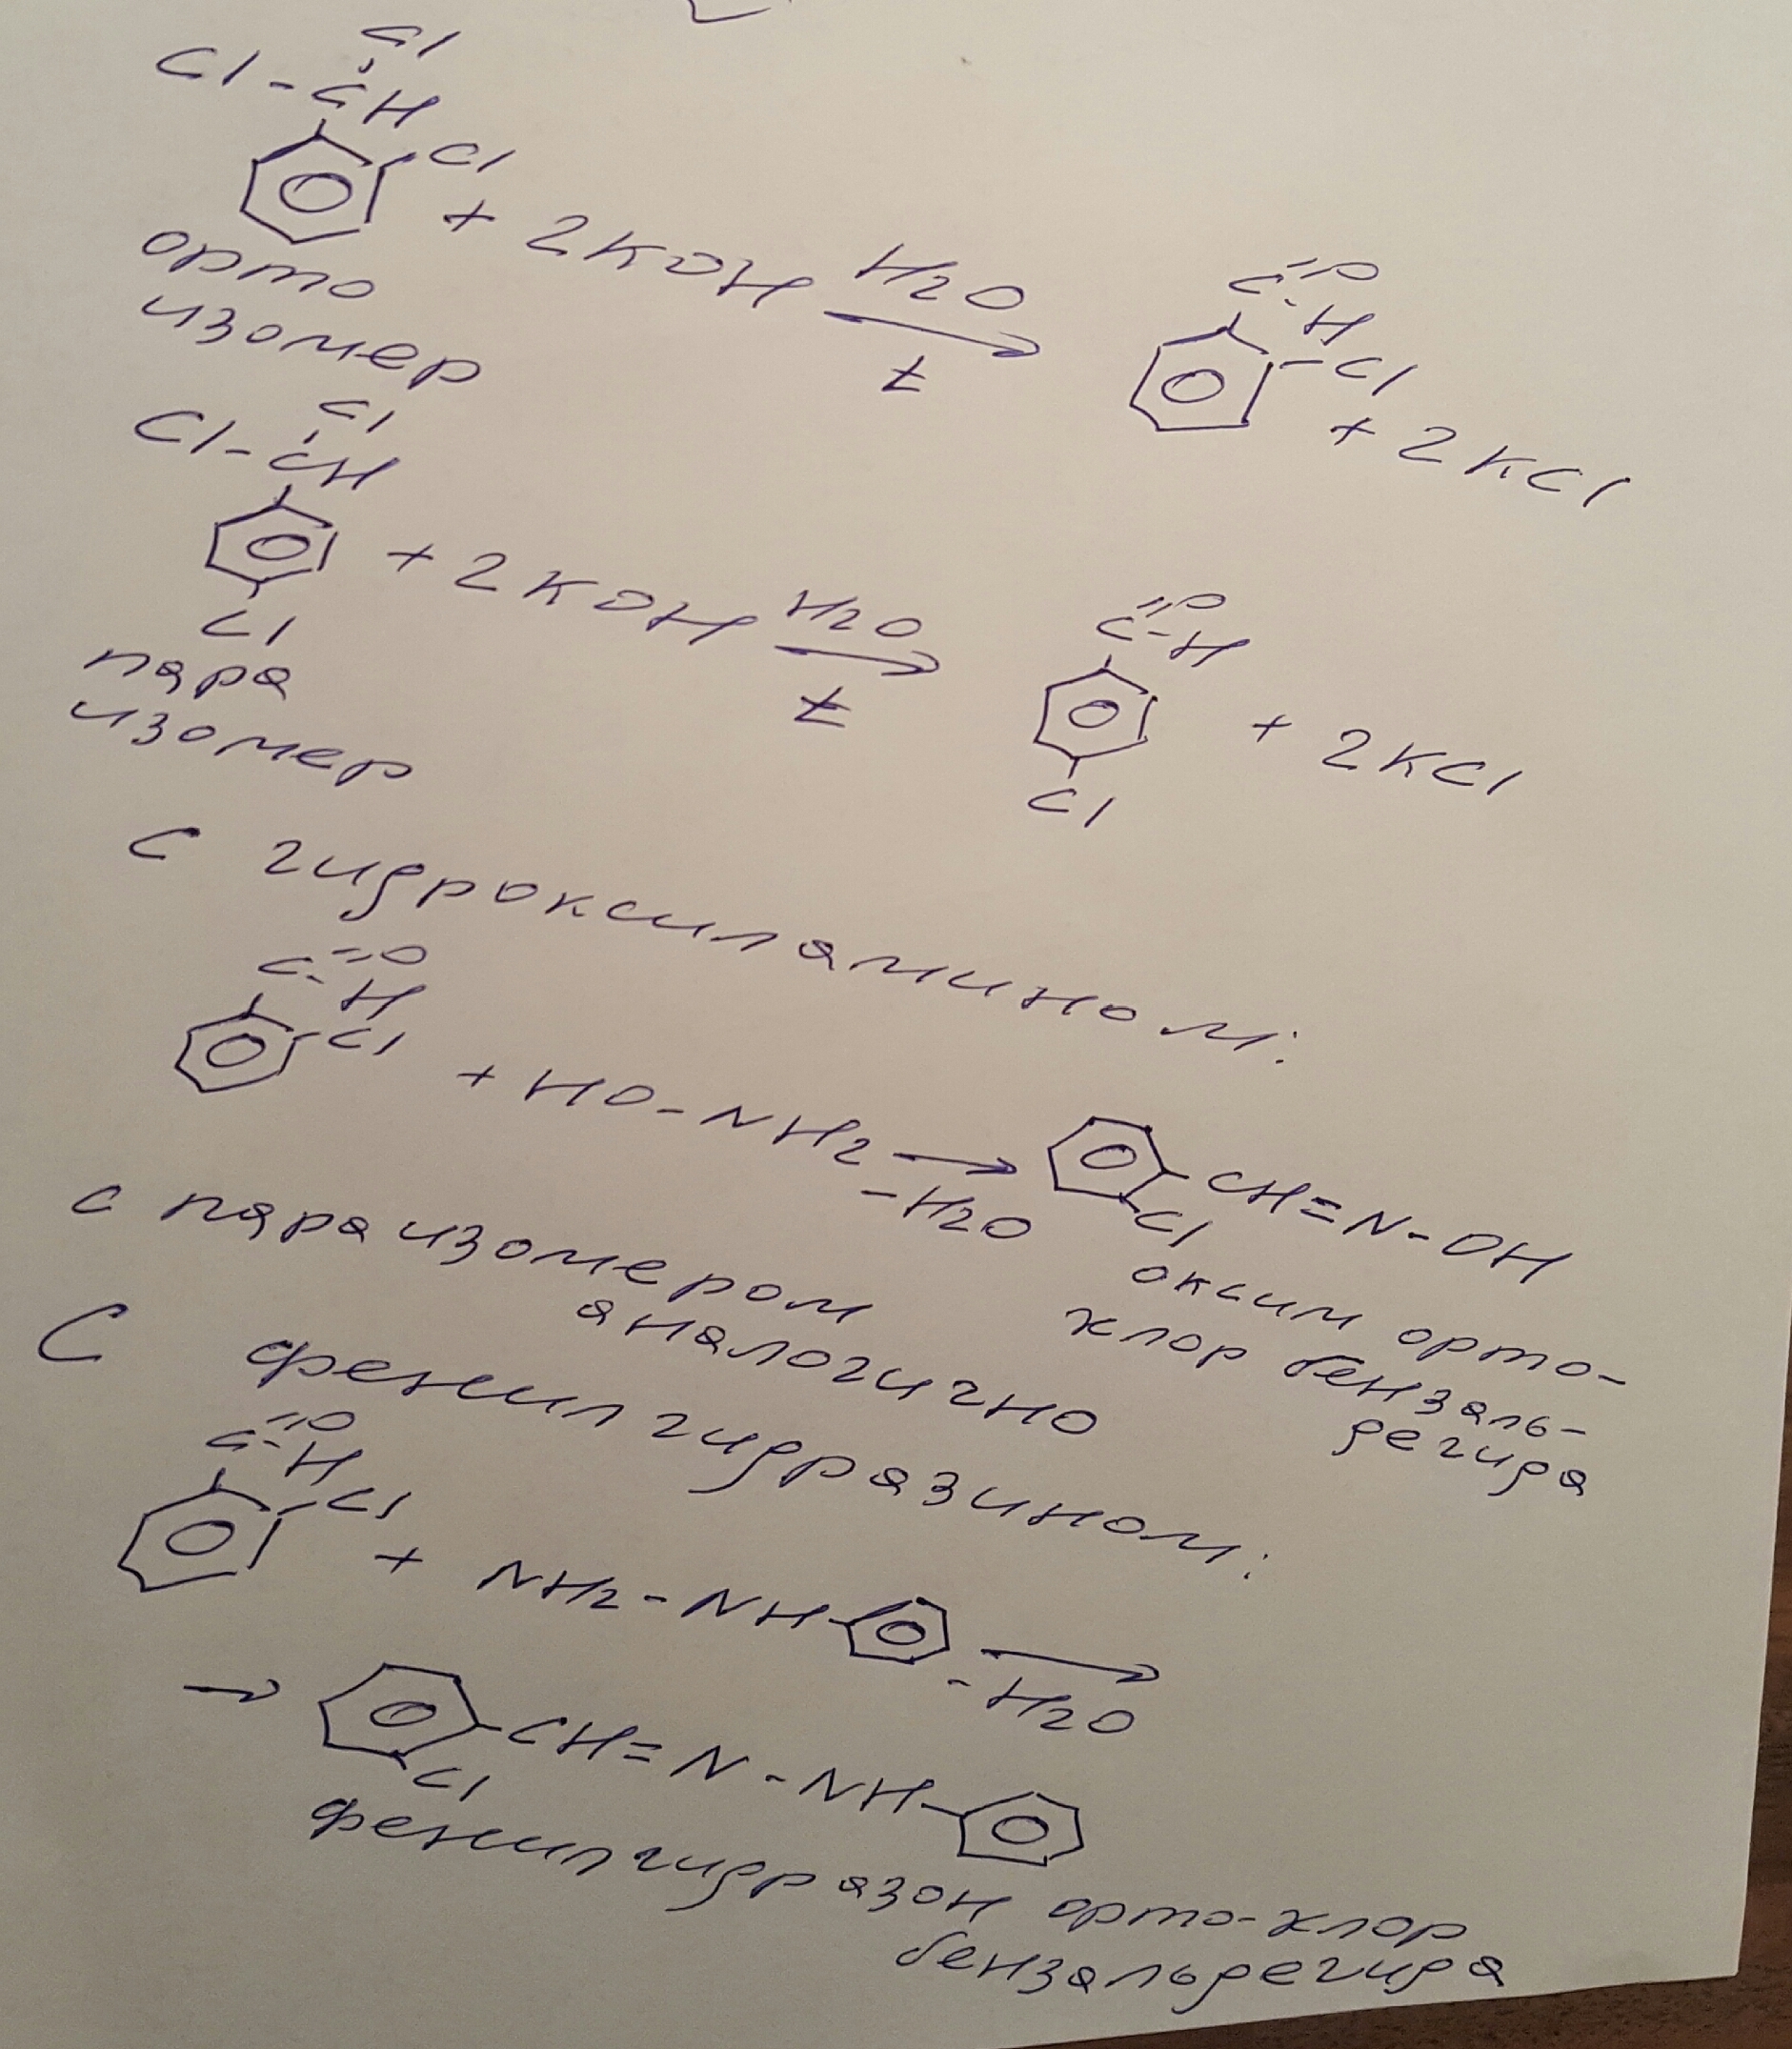 Cl
Cl-CH
Cl
+ 2KOH H2O
t
орто
изомер
C=O
-H
-Cl
+ 2KCl
Cl
Cl-CH
+ 2KOH H2O
t
Cl
пара
изомер
C=O
-H
+ 2KCl
Cl
С гидроксиламином:
C=O
-H
-Cl
+ HO-NH2 →
-H2O
-CH=N-OH
Cl
оксим орто-
хлор бензаль-
дегида
с пара изомером
аналогично
С фенилгидразином:
C=O
-H
Cl
+ NH2-NH- →
-H2O
→ -CH=N-NH-
Cl
фенилгидразон орто-хлор
бензальдегида